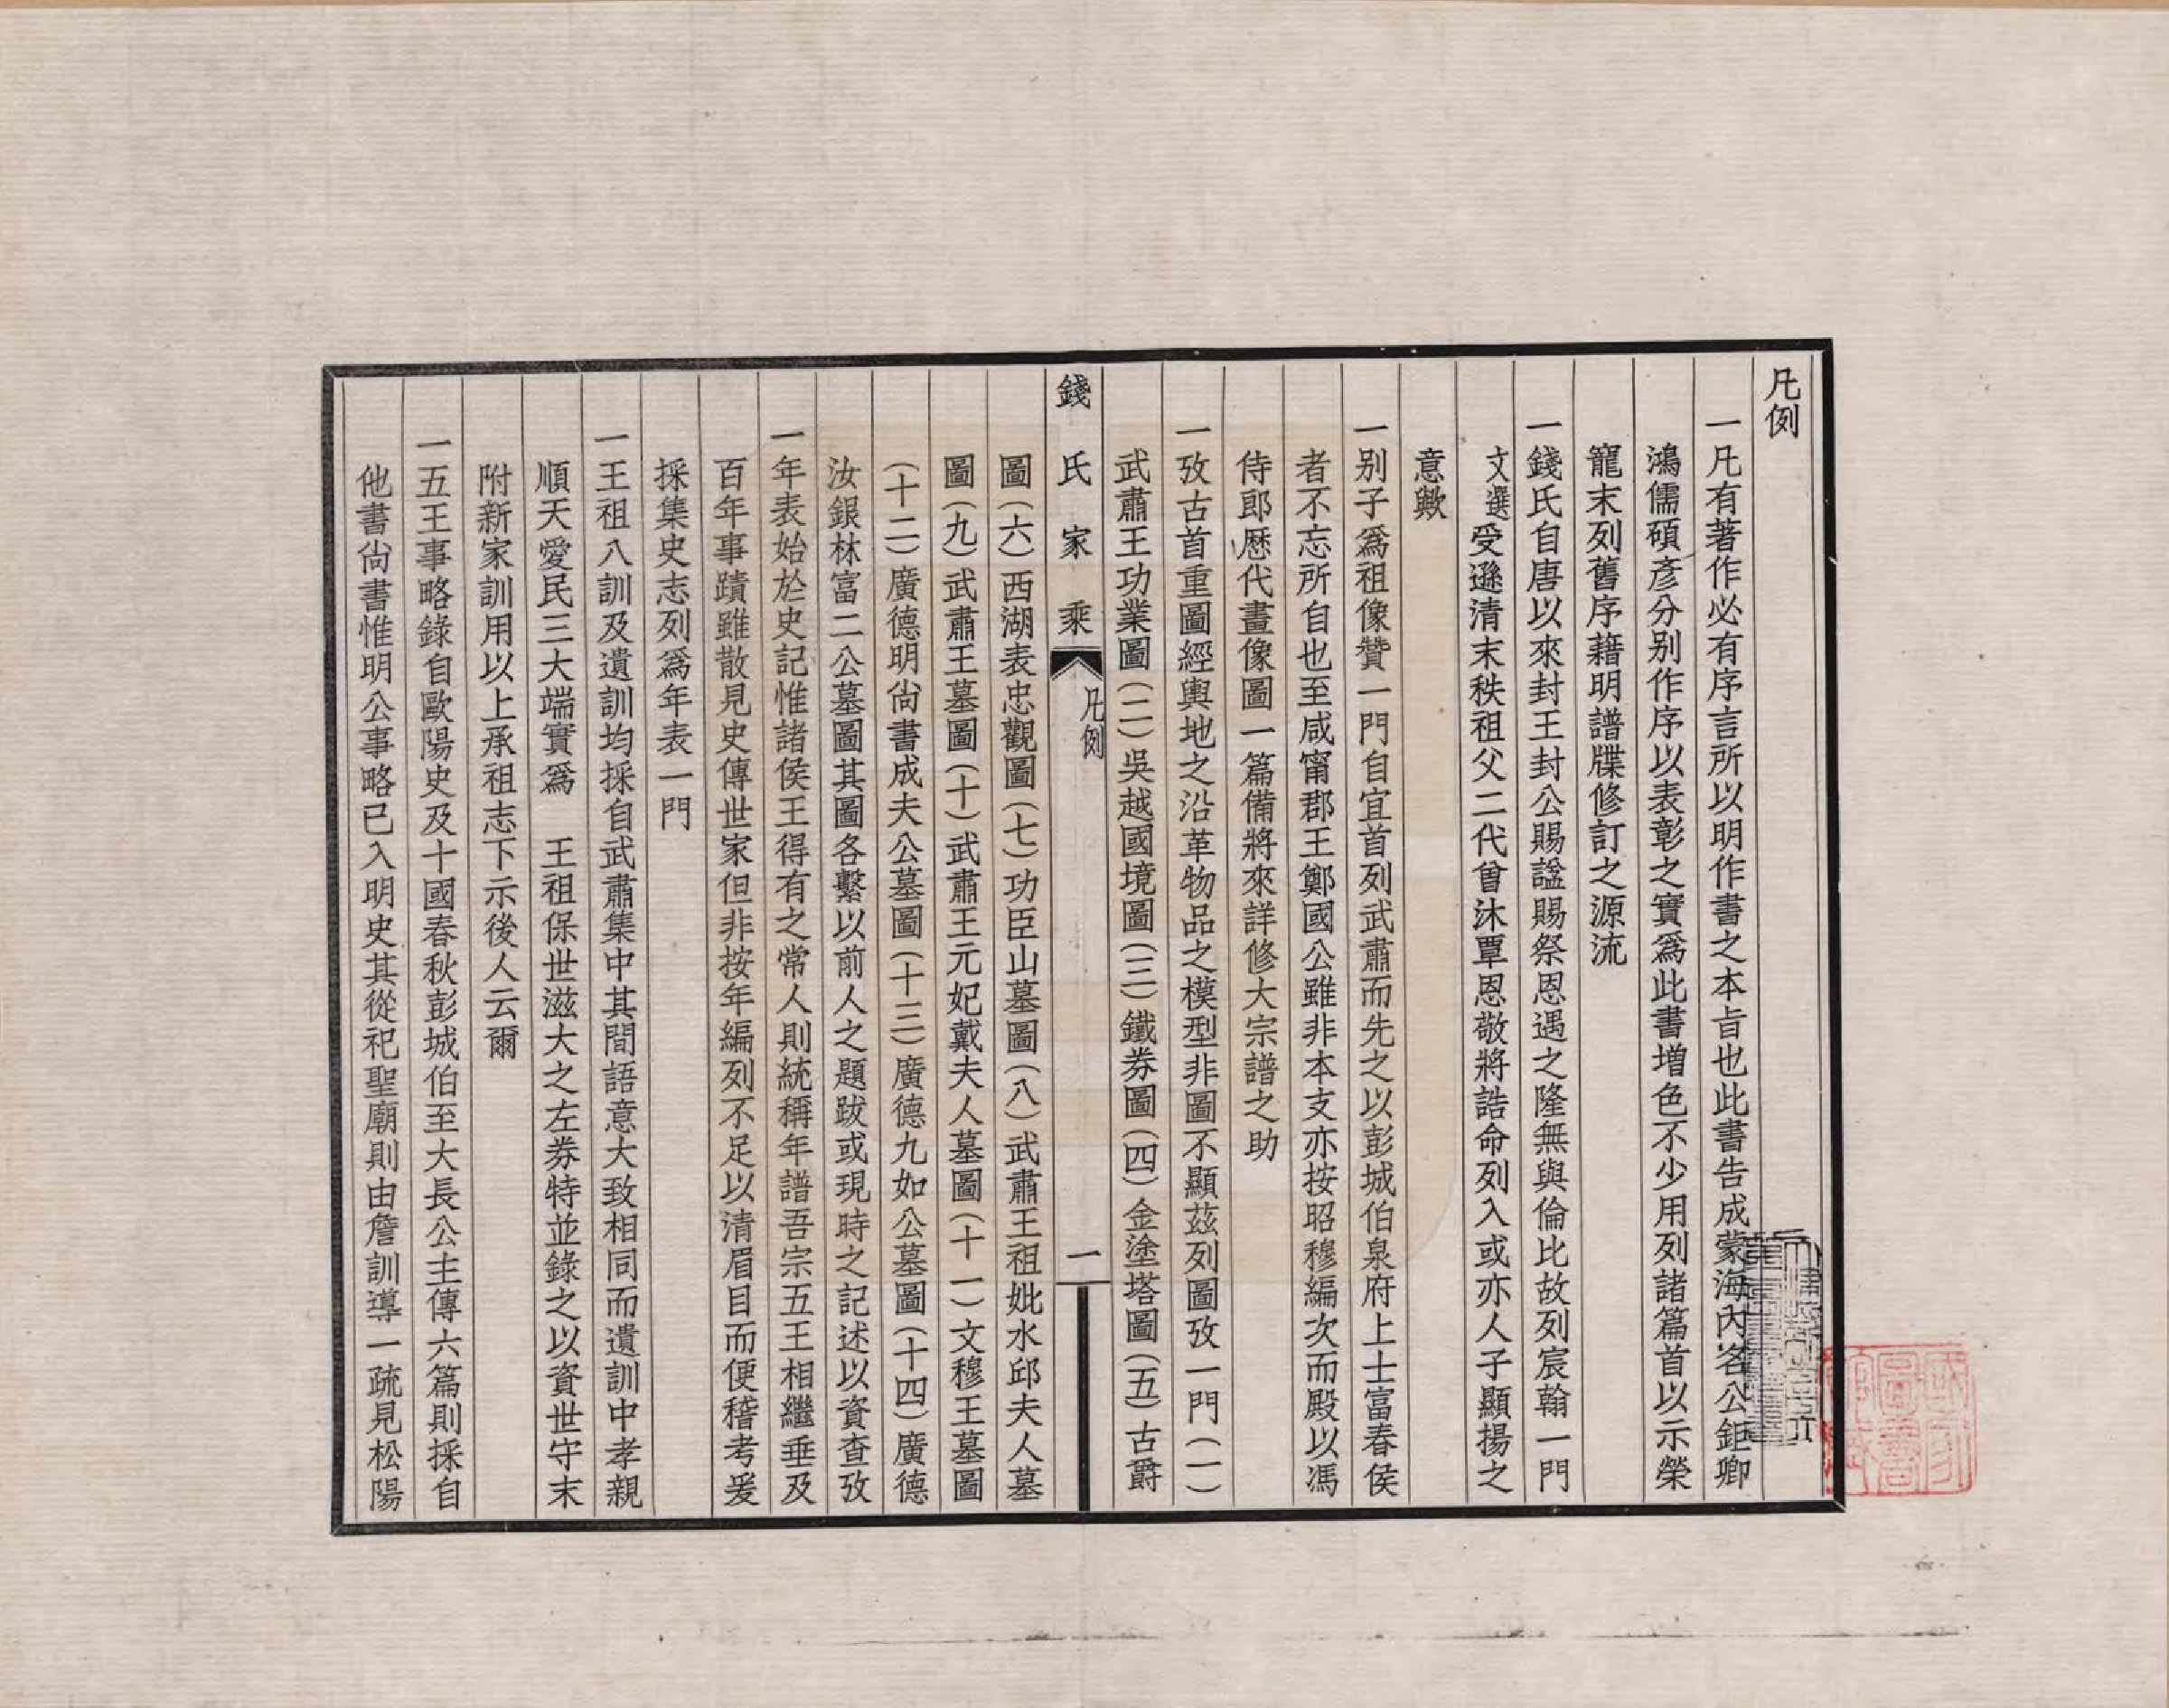 凡例
一凡有著作必有序言所以明作書之本旨也此書告成蒙海內名公鉅卿
鴻儒碩彥分别作序以表彰之實爲此書增色不少用列諸篇首以示榮
寵末列舊序藉明譜牒修訂之源流
一錢氏自唐以來封王封公賜諡賜祭恩遇之隆無與倫比故列宸翰一門
文選受遜清末秩祖父二代曾沐覃恩敬將誥命列入或亦人子顯揚之
意歟
一别子爲祖像贊一門自宜首列武肅而先之以彭城伯泉府上士富春侯
者不忘所自也至咸甯郡王鄭國公雖非本支亦按昭穆編次而殿以馮
侍郎歷代畫像圖一篇備將來詳修大宗譜之助
一攷古首重圖經輿地之沿革物品之模型非圖不顯茲列圖攷一門(一)
武肅王功業圖(二)吳越國境圖(三)鐵券圖(四)金塗塔圖(五)古爵
錢氏家乘 凡例 一
圖(六)西湖表忠觀圖(七)功臣山墓圖(八)武肅王祖妣水邱夫人墓
圖(九)武肅王墓圖(十)武肅王元妃戴夫人墓圖(十一)文穆王墓圖
(十二)廣德明尙書成夫公墓圖(十三)廣德九如公墓圖(十四)廣德
汝銀林富二公墓圖其圖各繫以前人之題跋或現時之記述以資查攷
一年表始於史記惟諸侯王得有之常人則統稱年譜吾宗五王相繼垂及
百年事蹟雖散見史傳世家但非按年編列不足以清眉目而便稽考爰
採集史志列爲年表一門
一王祖八訓及遺訓均採自武肅集中其間語意大致相同而遺訓中孝親
順天愛民三大端實爲　王祖保世滋大之左券特並錄之以資世守末
附新家訓用以上承祖志下示後人云爾
一五王事略錄自歐陽史及十國春秋彭城伯至大長公主傳六篇則採自
他書尙書惟明公事略已入明史其從祀聖廟則由詹訓導一疏見松陽
國家圖書館藏